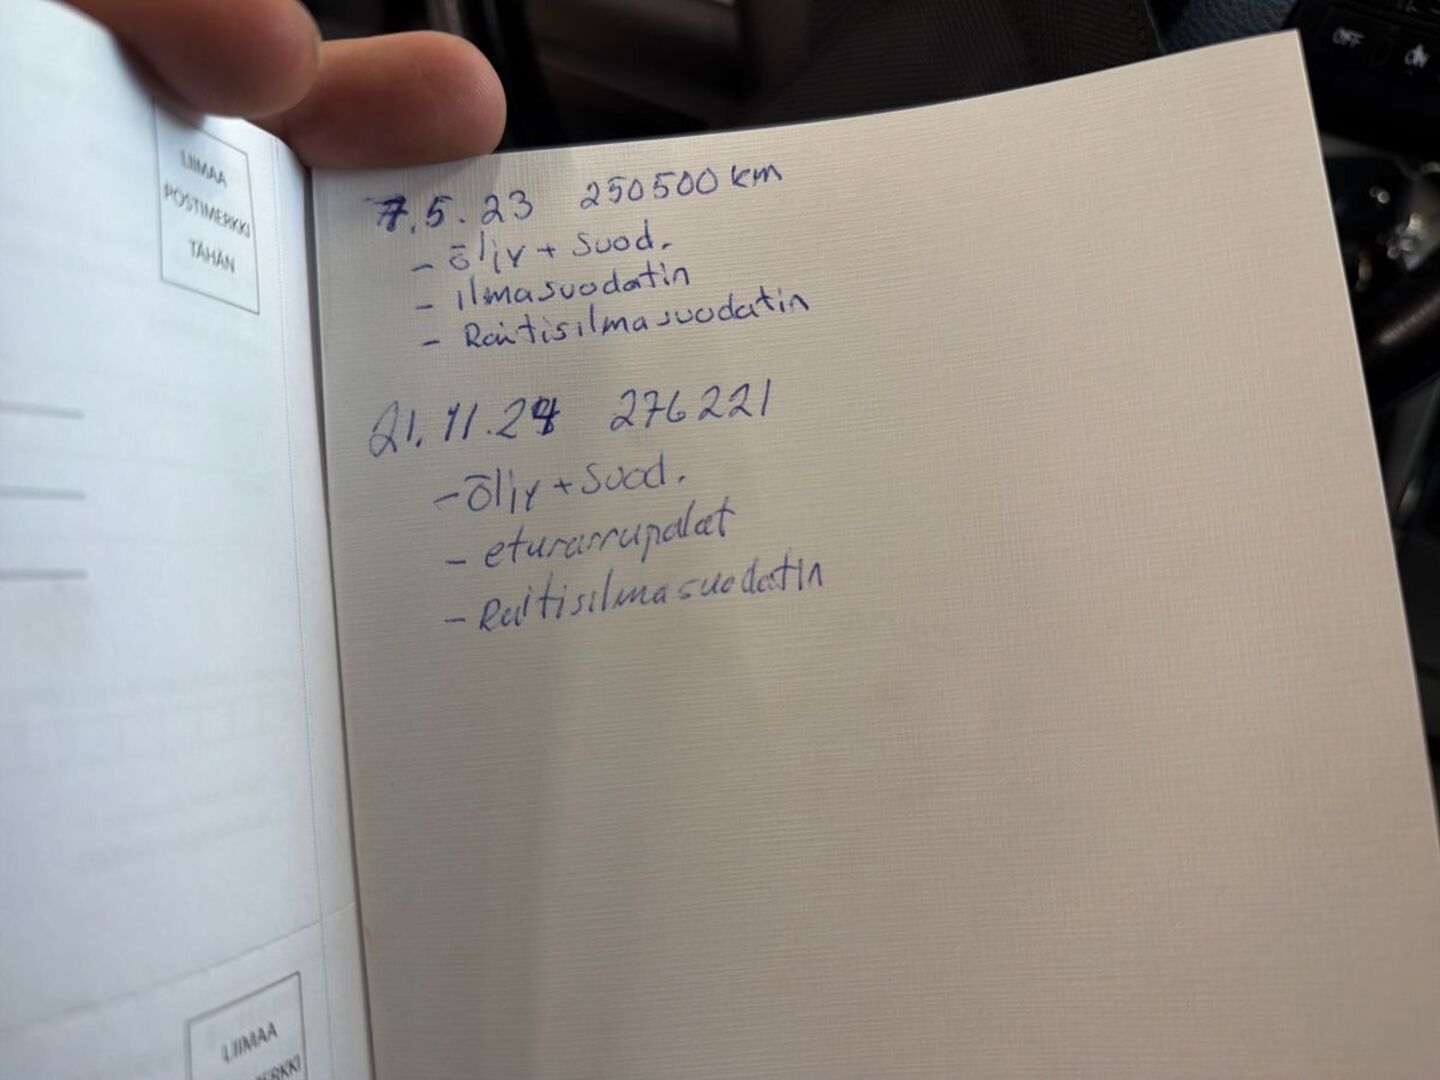 LIIMAA
POSTIMERKKI
TÄHÄN
7.5.23 250500 km
- öljy + suod.
- ilmasuodatin
- Raitisilmasuodatin
21.11.24 276221
- öljy + suod.
- etujarrupalat
- Raitisilmasuodatin
LIIMAA
OFF